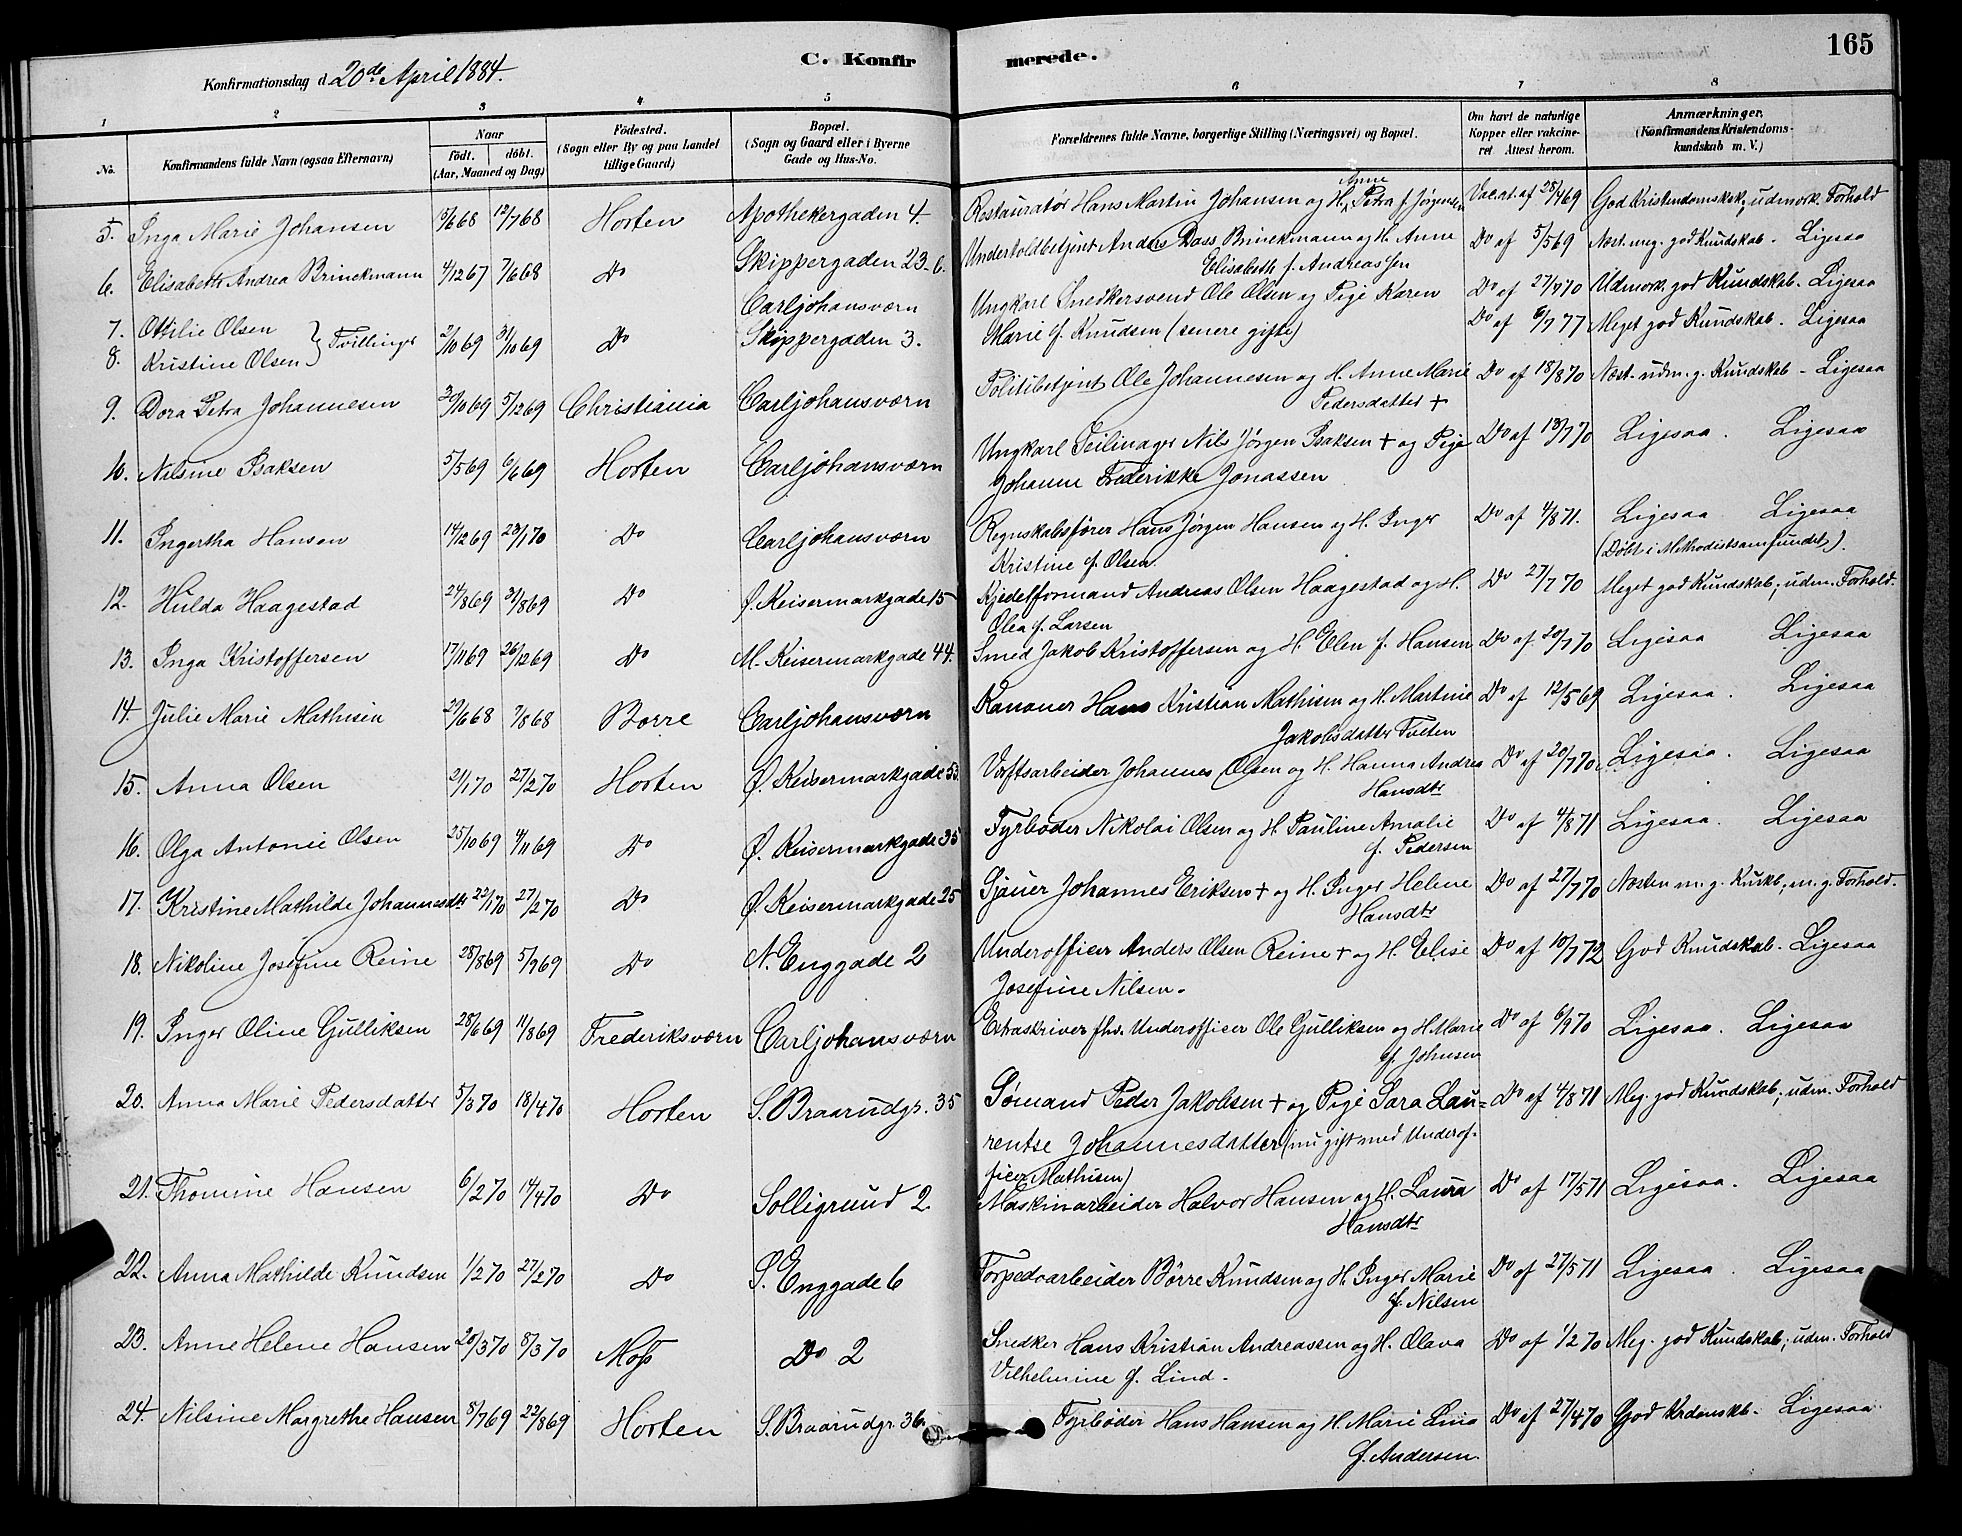 165
C. Konfirmerede.
Konfirmationsdag d. 20de April 1884.
1 2 3 4 5 6 7 8
No. Konfirmandens fulde Navn (ogsaa Efternavn) Naar født. døbt. (Aar, Maaned og Dag) Fødested. (Sogn eller By og paa Landet tillige Gaard) Bopæl. (Sogn og Gaard eller i Byerne Gade og Hus-No. Forældrenes fulde Navne, borgerlige Stilling (Næringsvei) og Bopæl. Om havt de naturlige Kopper eller vakcineret Attest herom. Anmærkninger. (Konfirmandens Kristendomskundskab m. V.)
5. Inga Marie Johansen 15/6 68 12/7 68 Horten Apothekergaden 4. Restauratør Hans Martin Johansen og H. Anne Petra f. Jørgensen Vac. at. af 28/4 69 God Kristendomsksk.; udmærk. Forhold
6. Elisabeth Andrea Brinckmann 4/12 67 7/6 68 Do Skippergaden 23-6. Undertoldbetjent Anders Dass Brinckmann og H. Anne Elisabeth f. Andreassen Do af 5/5 69 Næst. meg. god Kundskab. Ligesaa
7. Ottilie Olsen } Tvillinger 2/10 69 31/10 69 Do Carljohansværn Skippergaden 3. Ungkarl Snedkersvend Ole Olsen og Pige Karen Do af 27/7 70 Udmærk. god Kundskab. Ligesaa
8. Kristine Olsen Marie f. Knudsen (senere gifte) Do af 6/7 77 Meget god Kundskab. Ligesaa
9. Dora Petra Johannesen 30/10 69 5/12 69 Christiania Carljohansværn Politibetjent Ole Johannesen og H. Anne Marie Pedersdatter + Do af 18/8 70 Næst. udm. g. Kundskab - Ligesaa
10. Nilsine Isaksen 5/5 69 6/6 69 Horten Carljohansværn Ungkarl Seilmager Nils Jørgen Isaksen + og Pige Johanne Frederikke Jonassen Do af 13/7 70 Ligesaa. Ligesaa
11. Ingertha Hansen 14/12 69 23/1 70 Do Carljohansværn Regnskabsfører Hans Jørgen Hansen og H. Inger Kristine f. Olsen Do af 4/8 71. Ligesaa Ligesaa (Døbt i Methodistsamfundet).
12. Hulda Haagestad 24/8 69 31/8 69 Do Ø. Keisermarkgade 15 Kjedelformand Andreas Olsen Haagestad og H. Olea f. Larsen Do 27/7 70 Meget god Kundskab; udm. Forhold.
13. Inga Kristoffersen 17/11 69 26/12 69 Do M. Keisermarkgade 44. Smed Jakob Kristoffersen og H. Elen f. Hansen Do af 20/7 70 Ligesaa Ligesaa
14. Julie Marie Mathisen 29/6 68 7/8 68 Borre Carljohansværn Kanoner Hans Kristian Mathisen og H. Martine Jakobsdatter Tveten Do af 12/5 69 Ligesaa. Ligesaa
15. Anna Olsen 21/1 70 27/2 70 Horten Ø. Keisermarkgade 53. Verftsarbeider Johannes Olsen og H. Hanna Andrea Hansdtr Do af 20/7 70. Ligesaa. Ligesaa
16. Olga Antonie Olsen 25/10 69 4/11 69 Do Ø. Keisermarkgade 35 Fyrbøder Nikolai Olsen og H. Pauline Amalie f. Pedersen Do af 4/8 71 Ligesaa. Ligesaa
17. Kristine Mathilde Johannesdtr 22/1 70 27/2 70 Do Ø. Keisermarkgade 25 Sjauer Johannes Eriksen + og H. Inger Helene Hansdtr Do af 27/7 70 Næsten m. g. Kuskb.; m. g. Forhold.
18. Nikoline Josefine Reine 28/8 69 5/9 69 Do N. Enggade 2 Underofficer Anders Olsen Reine + og H. Elise Josefine Nilsen. Do af 10/7 72 God Kundskab. Ligesaa
19. Inger Oline Gulliksen 28/6 69 11/8 69 Frederiksværn Carljohansværn Extraskriver fhv. Underofficer Ole Gulliksen og H. Marie f. Johnsen Do af 6/9 70 Ligesaa. Ligesaa
20. Anna Marie Pedersdatter 5/3 70 18/4 70 Horten S. Braarudgr. 35 Sømand Peder Jakobsen + og Pige Sara Laurentse Johannesdatter (nu gift med Underofficer Mathisen) Do af 4/8 71 Meg. god Kundskab; udm. Forhold
21. Thomine Hansen 6/2 70 14/4 70 Do Solligrund 2. Maskinarbeider Halvor Hansen og H. Laura Hansdtr Do af 17/5 71 Ligesaa. Ligesaa
22. Anna Mathilde Knudsen 1/2 70 27/2 70 Do S. Enggade 6 Torpedoarbeider Børre Knudsen og H. Inger Marie f. Nilsen Do af 27/5 71 Ligesaa. Ligesaa
23. Anne Helene Hansen 20/3 70 8/3 70 Moss Do 2 Snedker Hans Kristian Andreassen og H. Olava Vilhelmine f. Lind. Do af 1/2 70 Meg. god Kundskab; udm. Forhold
24. Nilsine Margrethe Hansen 8/7 69 22/8 69 Horten S. Braarudgr. 36. Fyrbøder Hans Hansen og H. Marie Lina f. Andersen. Do af 27/4 70 God Krdomskb. Ligesaa